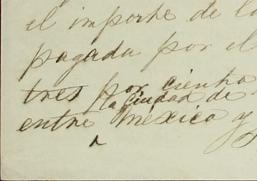 el importe de la
pagada por el
tres por ciento
la Ciudad de
entre Mexico y